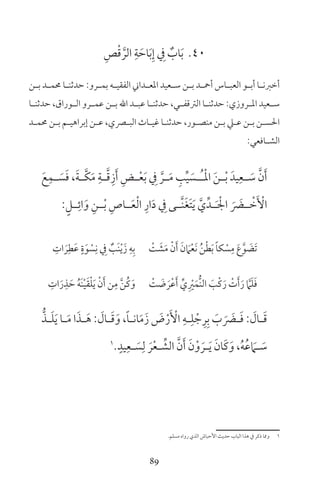 ٤٠. بَابٌ فِي إِبَاحَةِ الرَّقْصِ
أخبرنا أبو العباس أحمد بن سعيد المعداني الفقيه بمرو: حدثنا محمد بن
سعيد المروزي: حدثنا الترقفي، حدثنا عبد الله بن عمرو الوراق، حدثنا
الحسن بن علي بن منصور، حدثنا غياث البصري، عن إبراهيم بن محمد
الشافعي:
أَنَّ سَعِيدَ بْنَ الْمُسَيِّبِ مَرَّ فِي بَعْضِ أَزِقَّةِ مَكَّةَ، فَسَمِعَ
الْأَخْضَرَ الْجَدِّيَّ يَتَغَنَّى فِي دَارِ الْعَاصِ بْنِ وَائِلٍ:
تَضَوَّعَ مِسْكاً بَطْنُ نَعْمَانَ أَنْ مَشَتْ بِهِ زَيْنَبٌ فِي نِسْوَةٍ عَطِرَاتِ
فَلَمَّا رَأَتْ رَكْبَ النُّمَيْرِيِّ أَعْرَضَتْ وَكُنَّ مِن أَنْ يَلْقَيْنَهُ حَذِرَاتِ
قَالَ: فَضَرَبَ بِرِجْلِهِ الْأَرْضَ زَمَاناً، وَقَالَ: هَذَا مَا يَلَذُّ
سَمَاعُهُ، وَكَانَ يَرَوْنَ أَنَّ الشِّعْرَ لِسَعِيدٍ.١
١ ومما ذكر في هذا الباب حديث الأحباش الذي رواه مسلم.
89